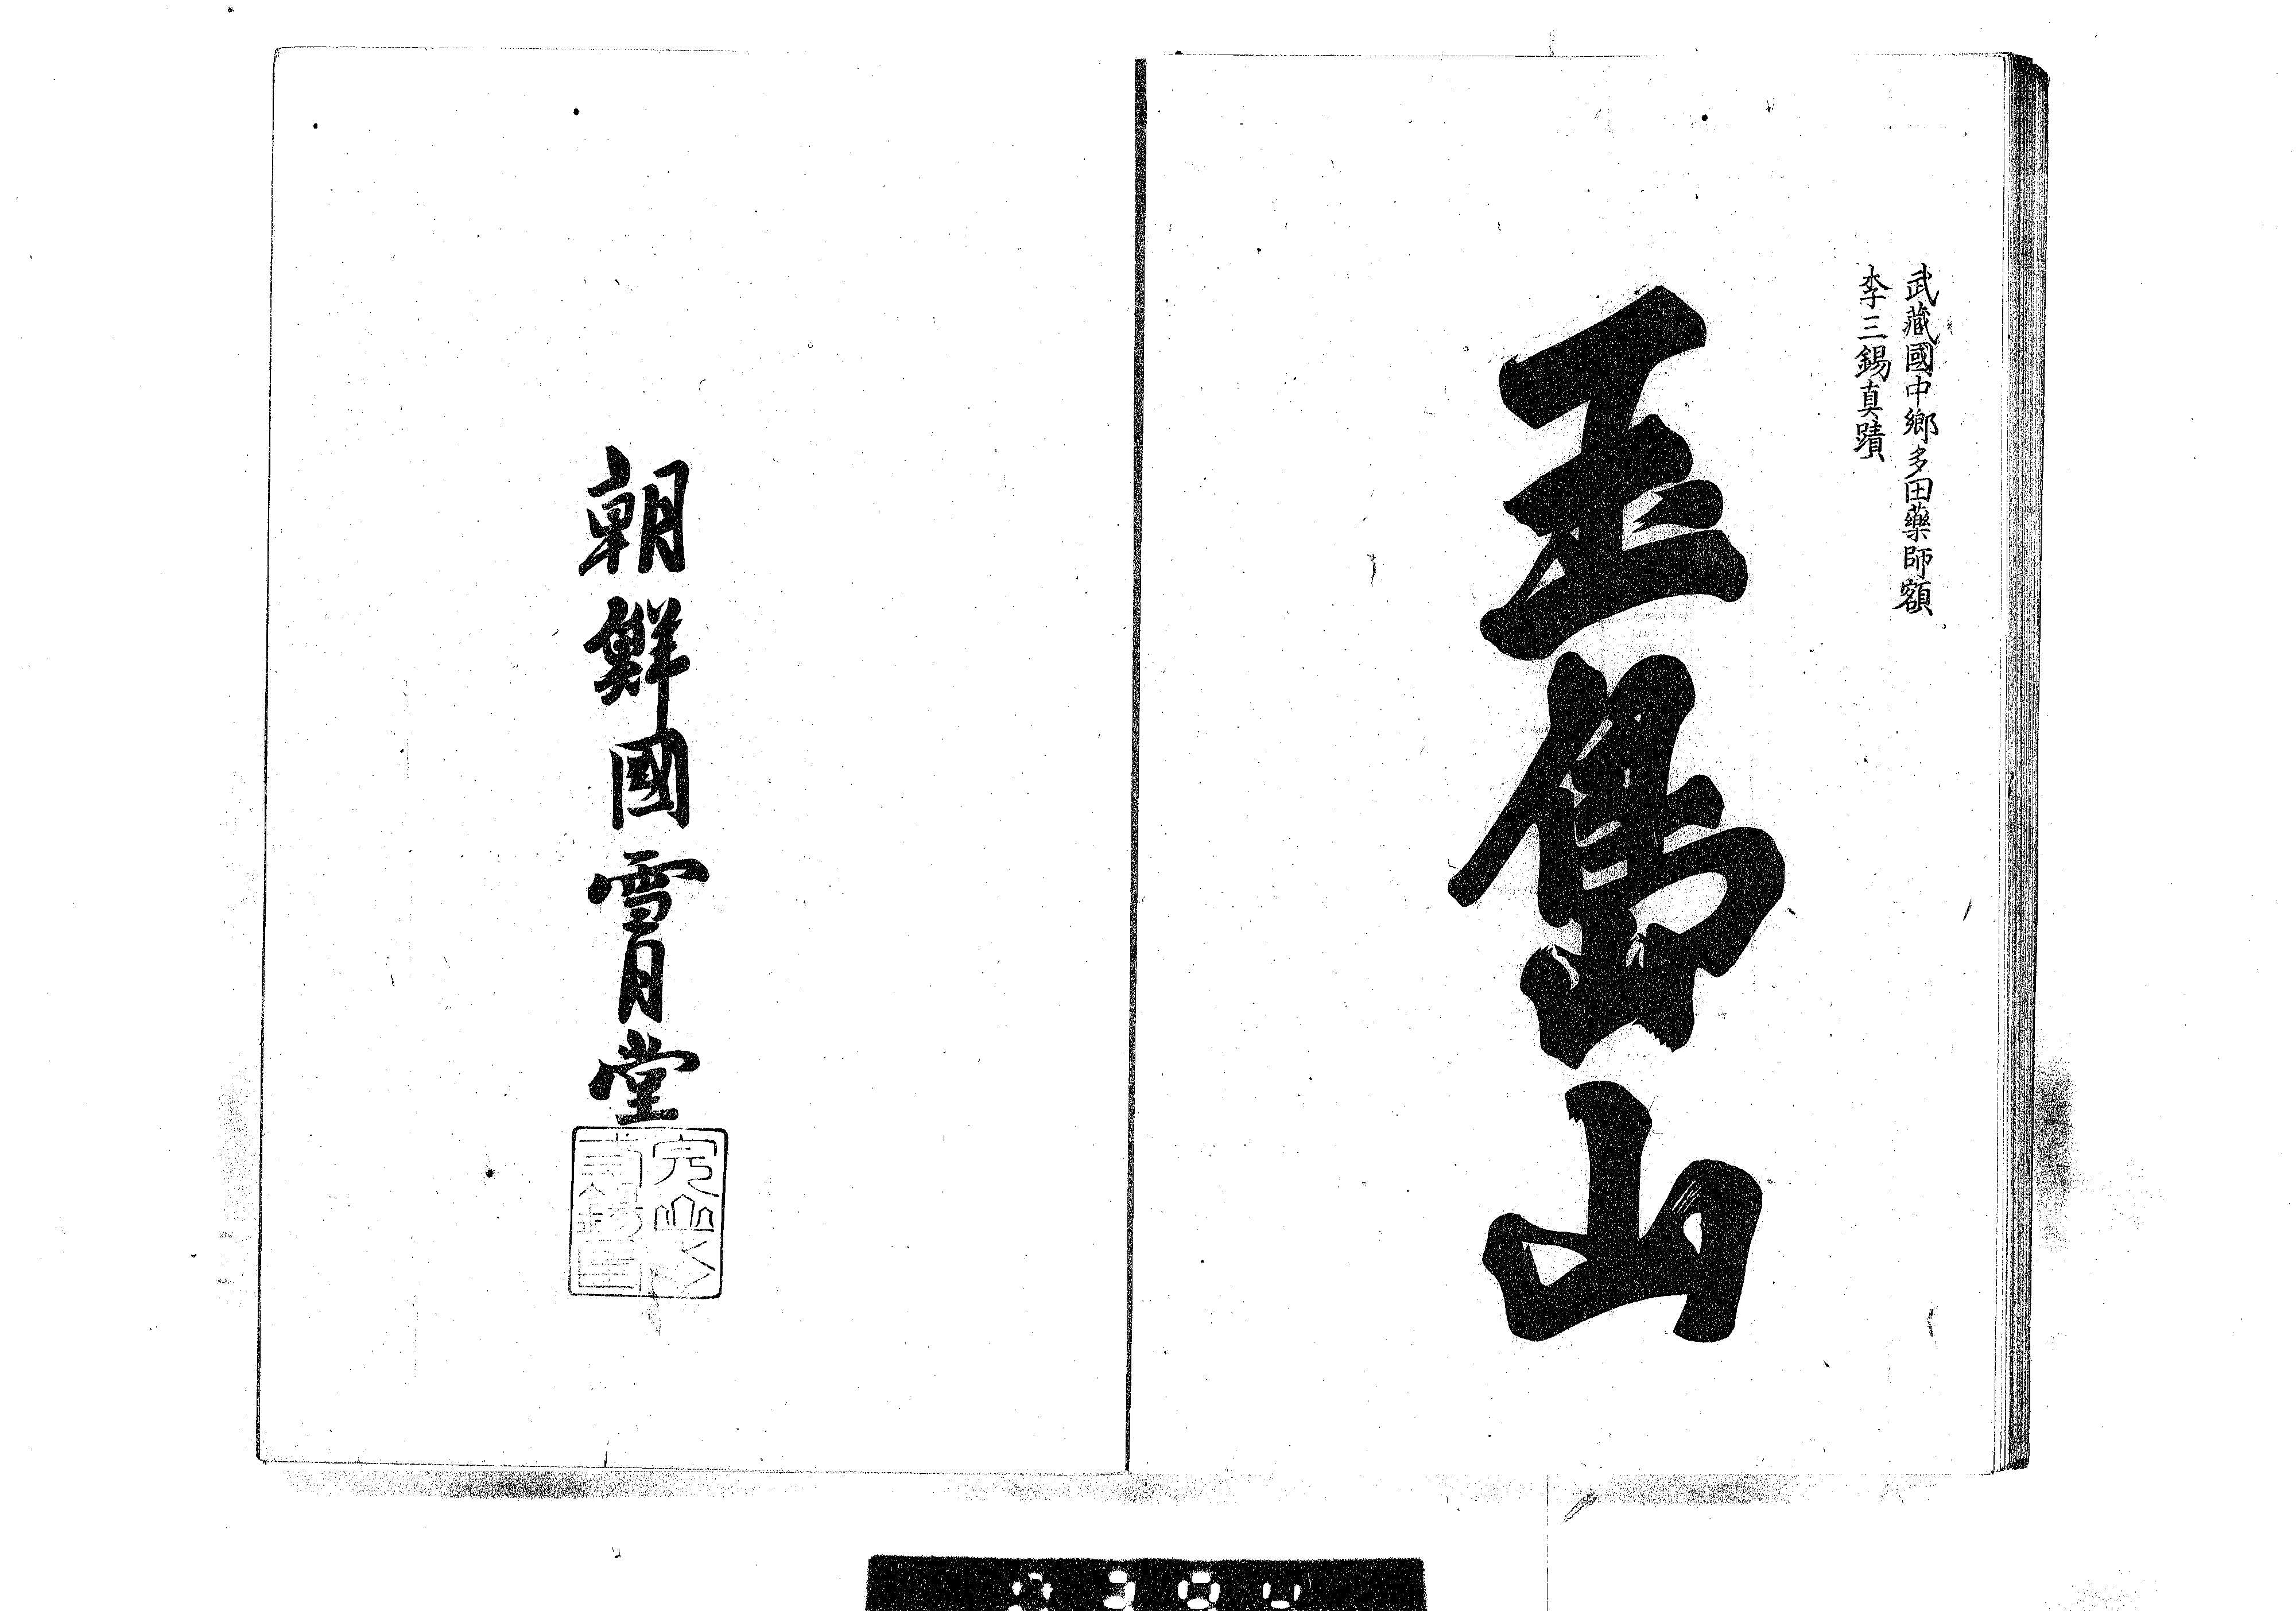 武藏國中鄉多田藥師額
李三錫真蹟
玉島山
朝鮮國雪月堂